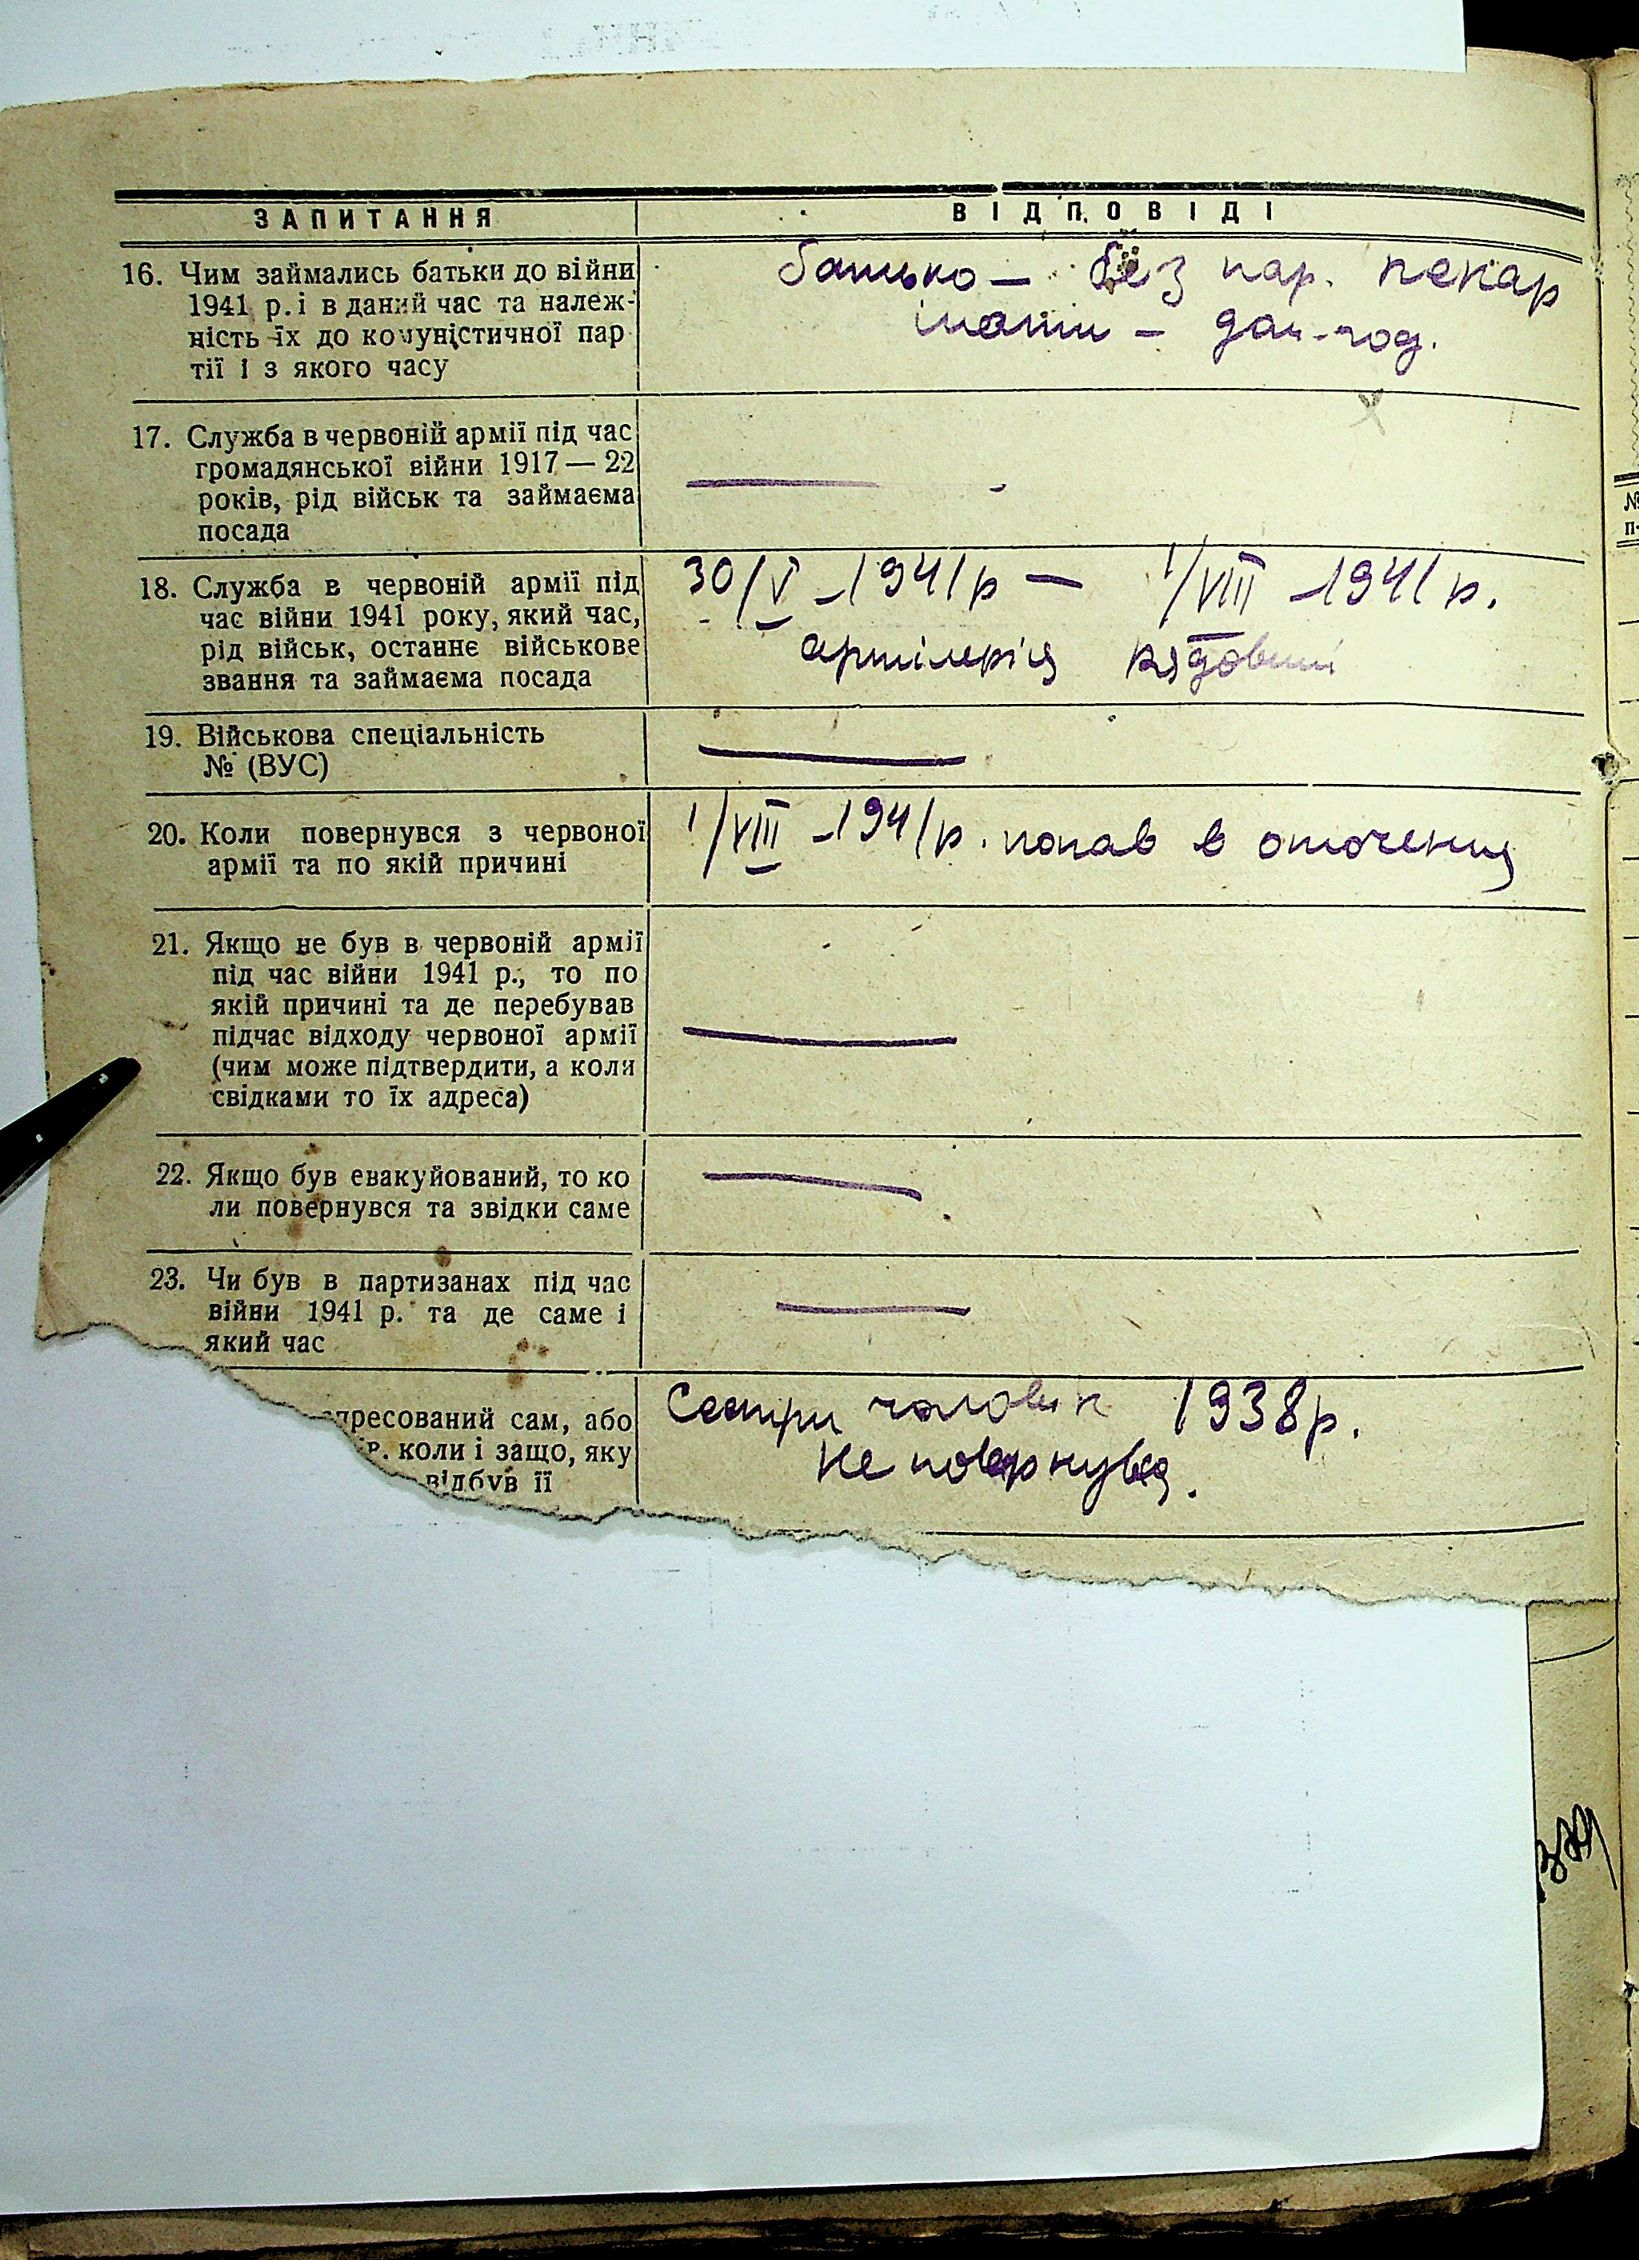 ЗАПИТАННЯ
ВІДПОВІДІ
16. Чим займались батьки до війни
1941 р. і в даний час та належ-
ність їх до комуністичної пар
тії і з якого часу
батько — без пар. пекар
мати — дом-год.
17. Служба в червоній армії під час
громадянської війни 1917 — 22
років, рід військ та займаєма
посада
—
18. Служба в червоній армії під
час війни 1941 року, який час,
рід військ, останнє військове
звання та займаєма посада
30/V -1941р — 1/VIII -1941 р.
артілерія рядовий
19. Військова спеціальність
№ (ВУС)
—
20. Коли повернувся з червоної
армії та по якій причині
1/VIII -1941р. попав в оточення
21. Якщо не був в червоній армії
під час війни 1941 р., то по
якій причині та де перебував
підчас відходу червоної армії
(чим може підтвердити, а коли
свідками то їх адреса)
—
22. Якщо був евакуйований, то ко
ли повернувся та звідки саме
—
23. Чи був в партизанах під час
війни 1941 р. та де саме і
який час
—
пресований сам, або
коли і защо, яку
відбув її
Сестри чоловік 1938р.
не повернувся.
№
п-